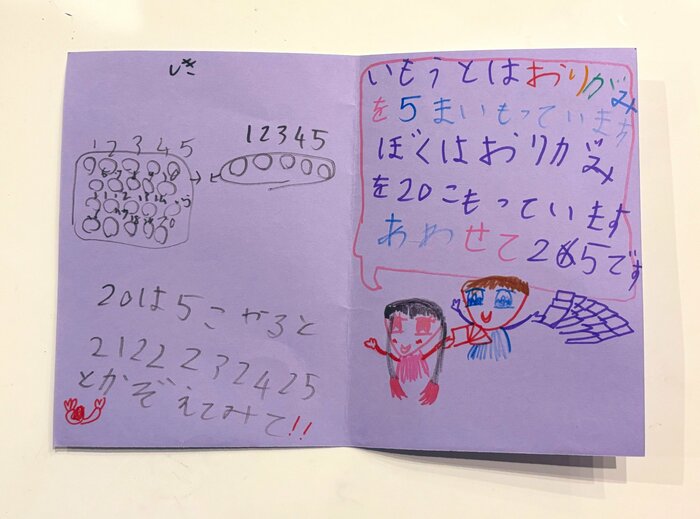 しき
1 2 3 4 5
1 2 3 4 5
20は5こやると
21 22 23 24 25
とかぞえてみて!!
いもうとはおりがみ
を5まいもっています
ぼくはおりがみ
を20こもっています
あわせて265です